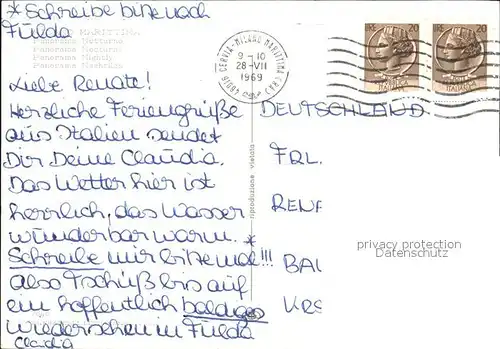 * Schreibe bitte nach
Fulda
MARITTIMA
Panorama Notturno
Panorama Nocturne
Panorama Nightly
Panorama Nachtliche
48016 CERVIA-MILANO MARITTIMA (RA)
9-10
28-VII
1969
LIRE 20
ITALIANA
LIRE 20
ITALIANA
Liebe Renate!
Herzliche Feriengrüße
aus Italien sendet
Dir Deine Claudia.
Das Wetter hier ist
herrlich, das Wasser
wunderbar warm. *
Schreibe mir bitte mal!!!
Also Tschüß bis auf
ein hoffentlich baldiges
Wiedersehen in Fulda
Claudia
riproduzione vietata
DEUTSCHLAND
FRL.
RENA
BAL
KRS
privacy protection
Datenschutz